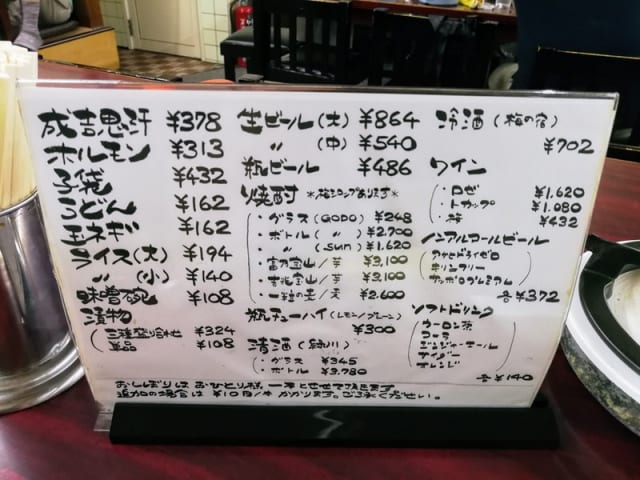 成吉思汗 ¥378
ホルモン ¥313
子袋 ¥432
うどん ¥162
玉ネギ ¥162
ライス(大) ¥194
〃(小) ¥140
味噌椀 ¥108
漬物
三種盛り合わせ ¥324
単品 ¥108
生ビール(大) ¥864
〃(中) ¥540
瓶ビール ¥486
焼酎 *梅シロップあります*
・グラス(GODO) ¥248
・ボトル(〃) ¥2.700
・〃(SUN) ¥1.620
・富乃宝山/芋 ¥3,100
・吉兆宝山/芋 ¥3,100
・一粒の麦/麦 ¥2.600
瓶チューハイ(レモン/プレーン) ¥300
清酒(緑川)
・グラス ¥345
・ボトル ¥3.780
冷酒(梅の宿) ¥702
ワイン
・ロゼ ¥1.620
・トカップ ¥1.080
・梅 ¥432
ノンアルコールビール
アサヒドライゼロ
キリンフリー
サッポロプレミアム
各¥372
ソフトドリンク
ウーロン茶
コーラ
ジンジャーエール
サイダー
オレンジ
各¥140
おしぼりはおひとり様一本とさせて頂きます。
追加の場合は¥10円/本かかります。ご了承ください。